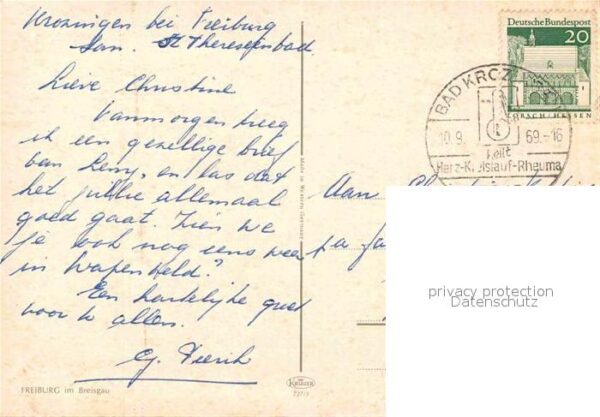 Krozingen bei Freiburg
San. St Theresienbad.
Lieve Christine
Vanmorgen kreeg
ik een gezellige brief
van Leny, en las dat
het jullie allemaal
goed gaat. Zien we
je ook nog eens weer
in Wapenveld?
Een hartelijke groet
voor U allen.
FREIBURG im Breisgau
Made in Western Germany
KRÜGER
Deutsche Bundespost
20
LORSCH/HESSEN
BAD KROZINGEN
10.9. 69.-16
heilt
Herz-Kreislauf-Rheuma
Aan
privacy protection
Datenschutz